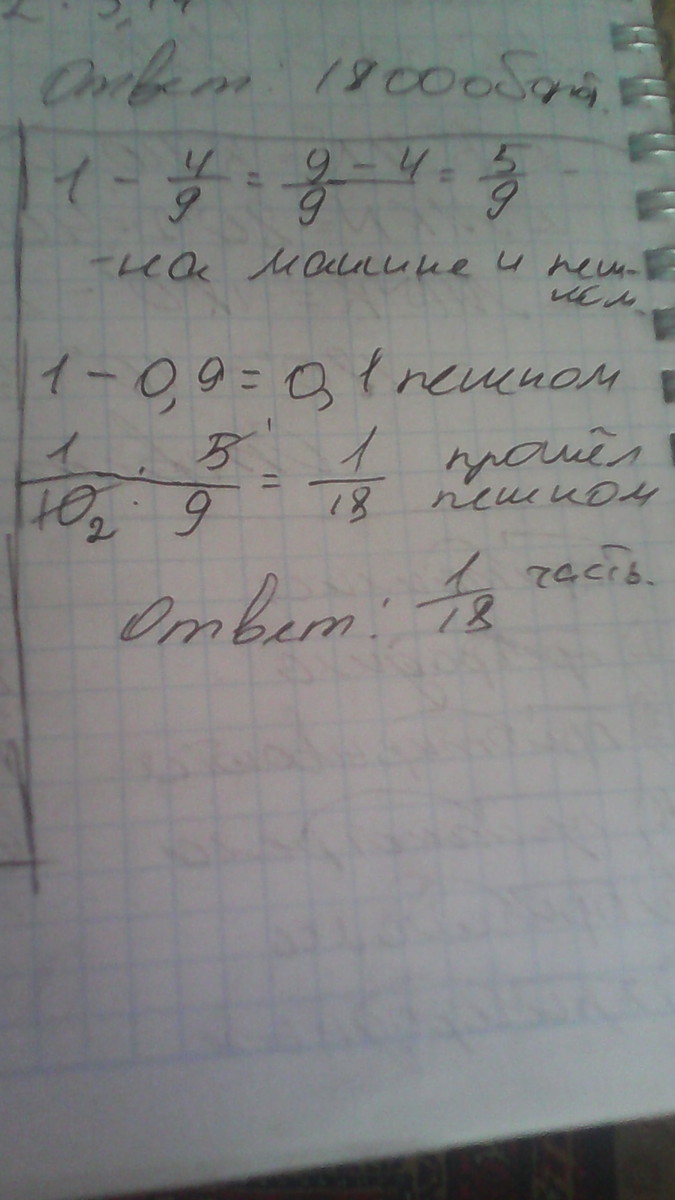 Ответ: 18000 об
1 - 4/9 = 9-4/9 = 5/9 -
- на машине и пеш-
ком.
1 - 0,9 = 0,1 пешком
1/10 2 · 5 1/9 = 1/18 прошёл
пешком
Ответ: 1/18 часть.